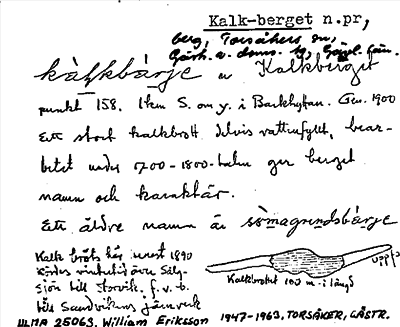 Kalk-berget n.pr,
berg, Torsåkers sn,
Gästr. ö. doms. hg, Gävl. län.
kàlkbärje av Kalkberget
punkt 158. 1 km S. om y. i Barkhyttan. Gen. 1900
Ett stort kalkbrott delvis vattenfyllt, bear-
betet under 1700-1800-talen ger berget
namn och karaktär.
Ett äldre namn är sömagrundsbärje
Kalk bröts här senast 1890
Kördes vintertid över Säljsjön
till Storvik f.v.b.
till Sandvikens järnverk
uppf
Kalkbrottet 100 m i längd
ULMA 25063. William Eriksson 1947-1963, TORSÅKER, GÄSTR.